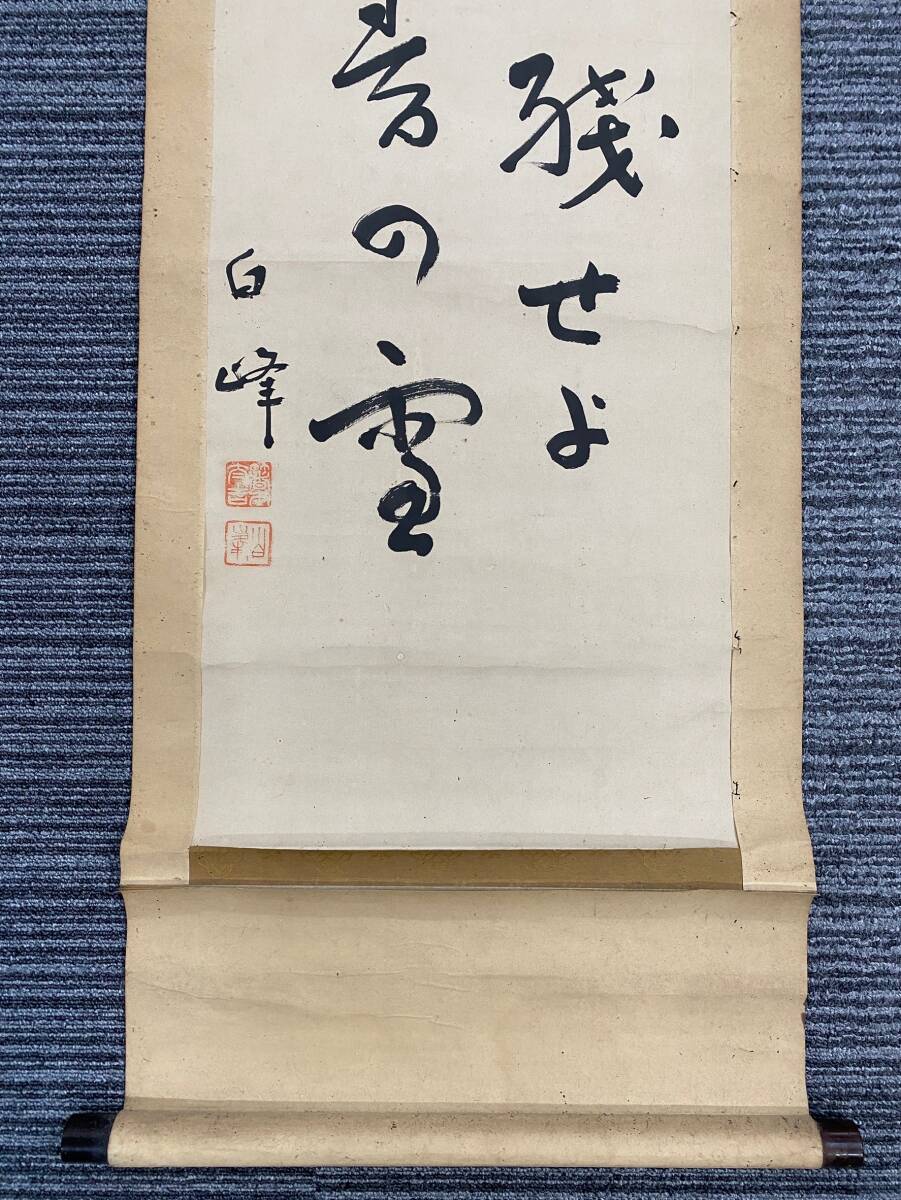 残せよ
の雪
白峰